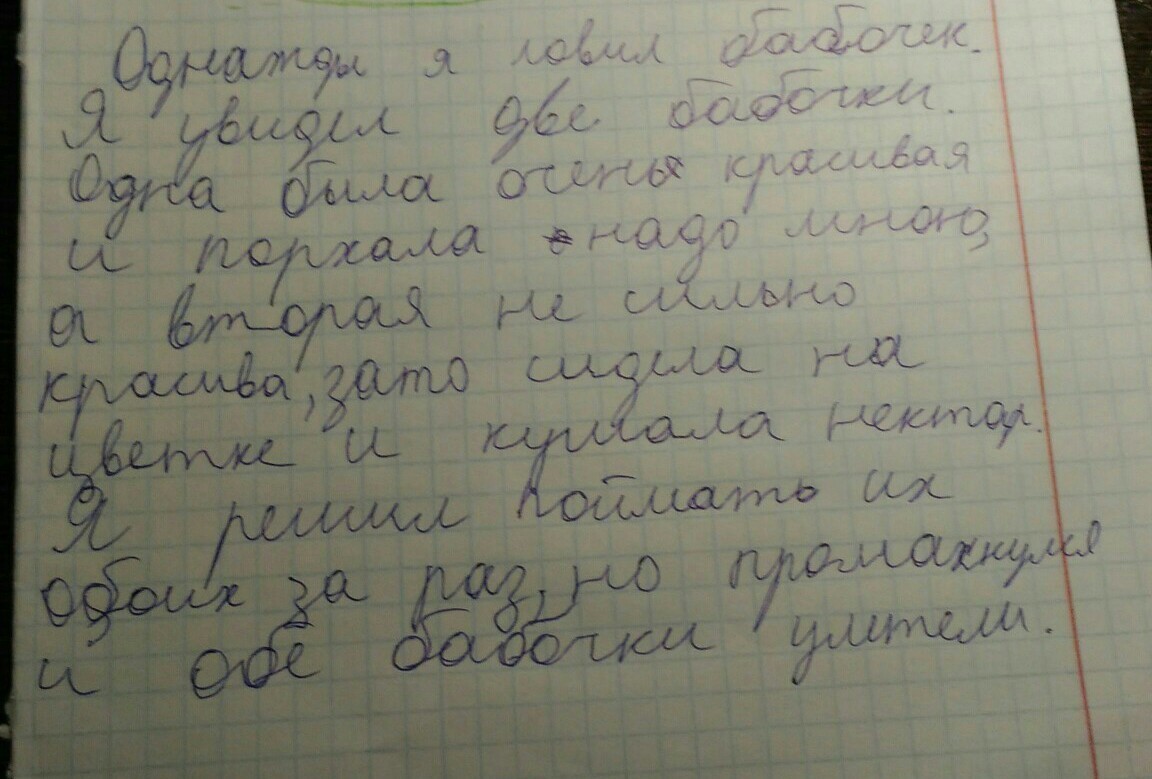 Однажды я ловил бабочек.
Я увидел две бабочки.
Одна была очень красивая
и порхала надо мною,
а вторая не сильно
красива, зато сидела на
цветке и кушала нектар.
Я решил поймать их
обоих за раз, но промахнулся
и обе бабочки улетели.